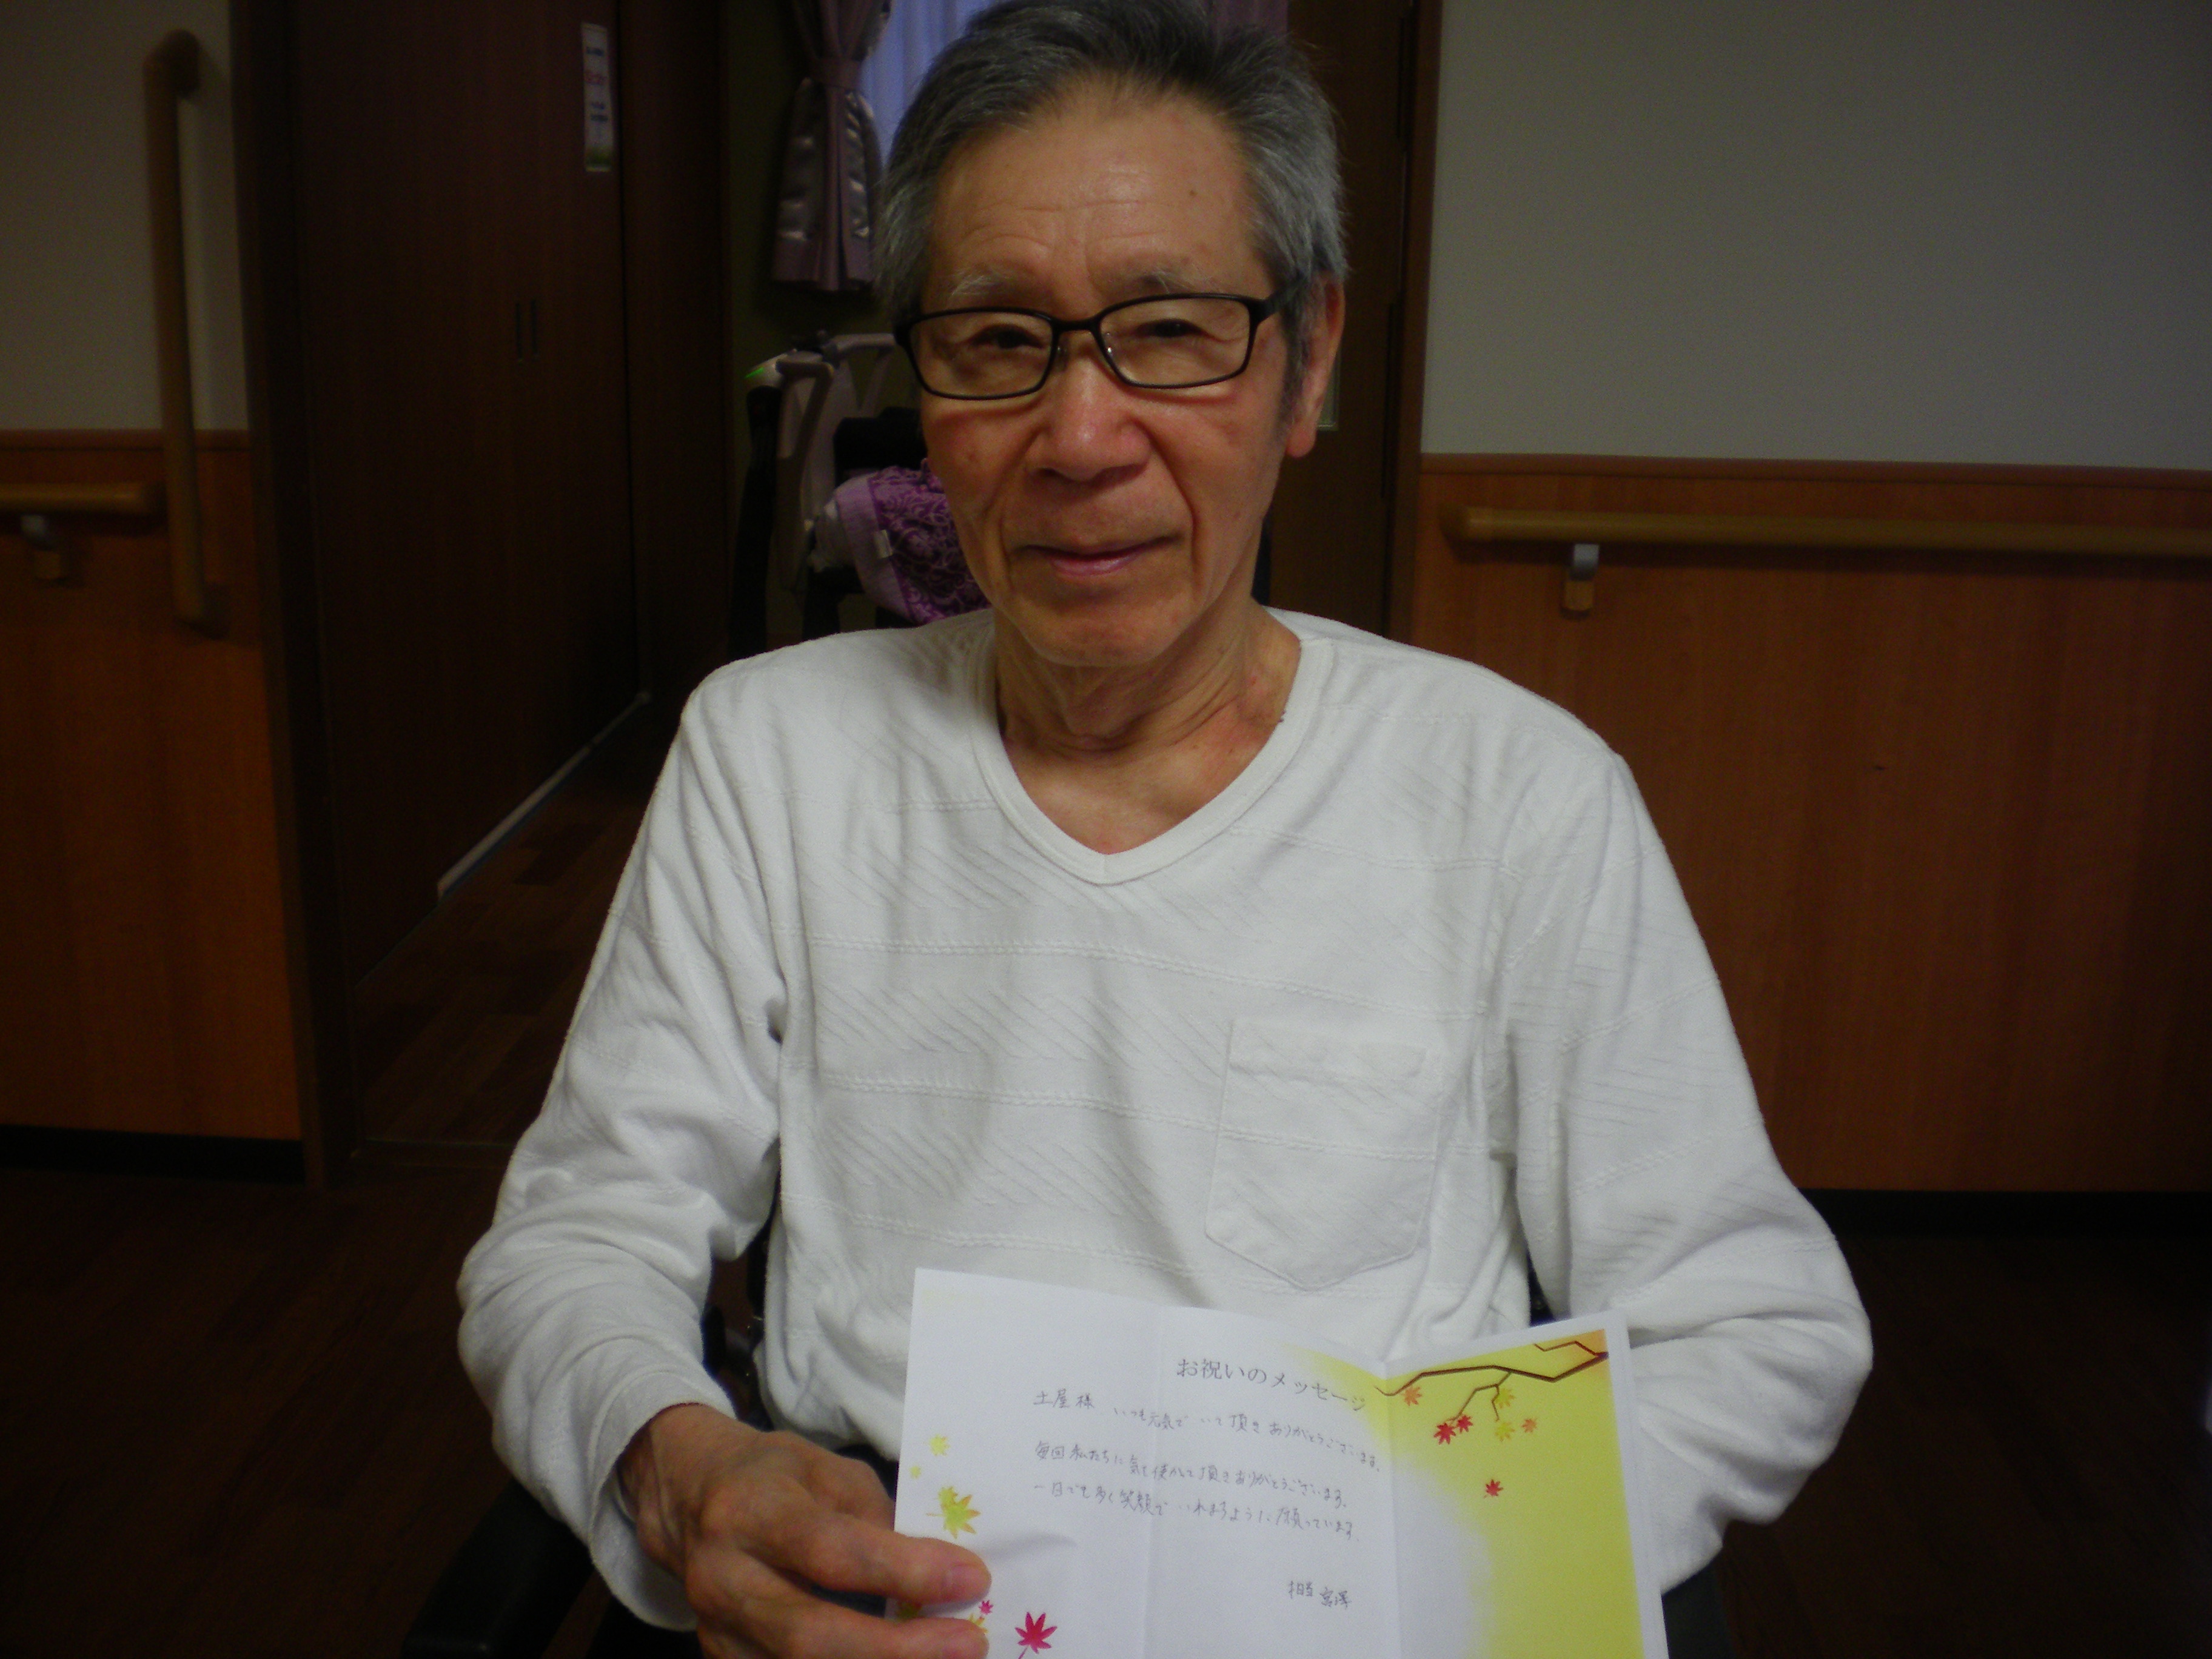 お祝いのメッセージ
土屋様 いつも元気で いて頂き ありがとうございます。
毎回私たちに気を使って頂きありがとうございます。
一日でも多く笑顔で いれますように願っています。
宮澤